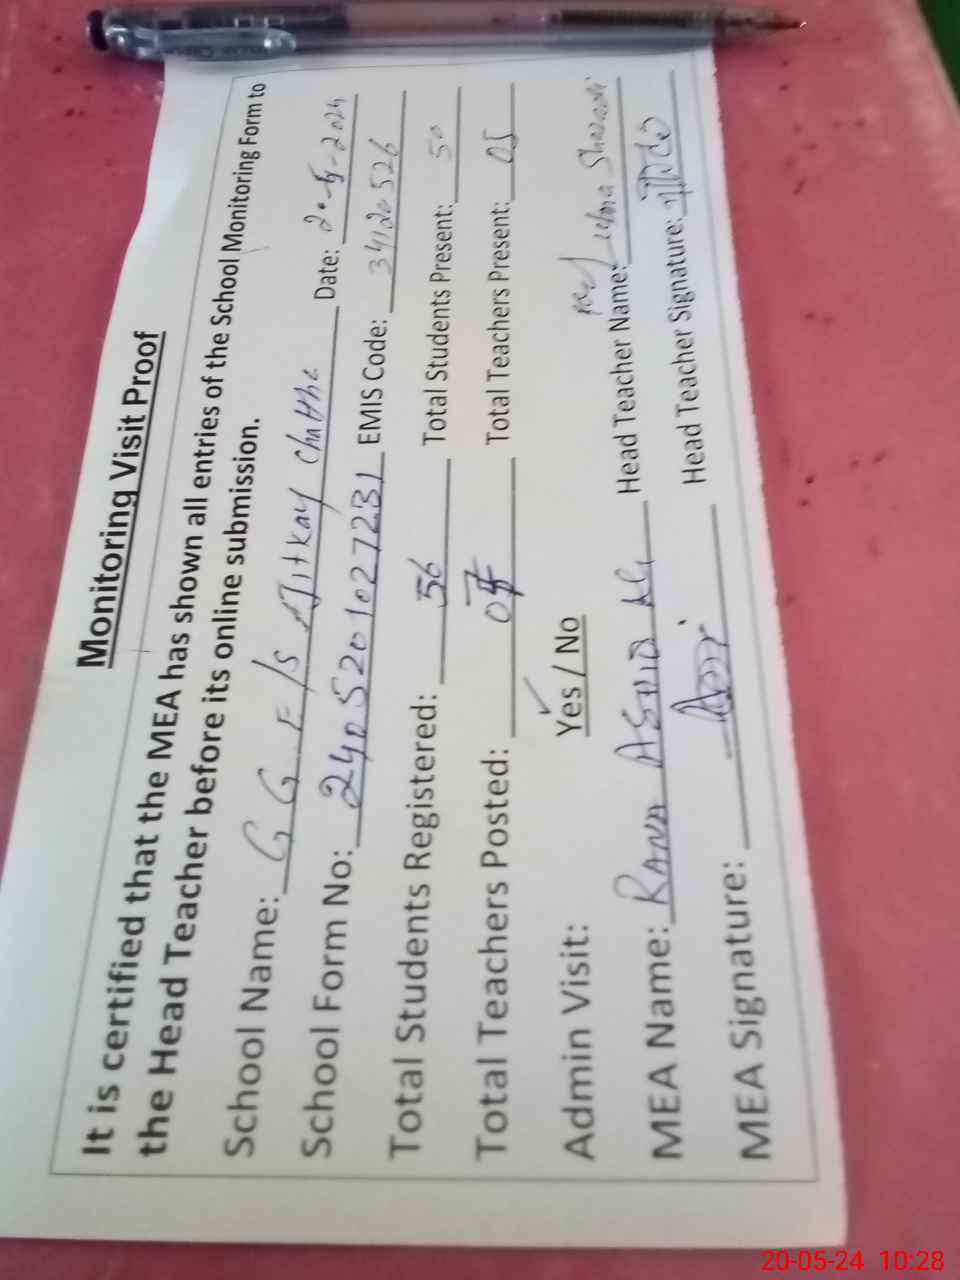 Monitoring Visit Proof
It is certified that the MEA has shown all entries of the School Monitoring Form to
the Head Teacher before its online submission.
School Name: G G E/S Jitkay Chattha Date: 20-5-2024
School Form No: 2405201027231 EMIS Code: 34120526
Total Students Registered: 56 Total Students Present: 50
Total Teachers Posted: 07 Total Teachers Present: 05
Admin Visit: Yes / No
MEA Name: RANA ASHID Ali Head Teacher Name:
MEA Signature: Head Teacher Signature:
20-05-24 10:28